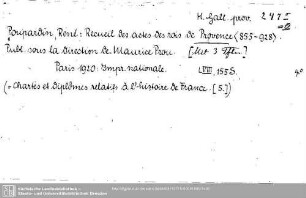 H. Gall. prov. 247 I
Poupardin, René: Recueil des actes des rois de Provence (855-928).
Publ. sous la direction de Maurice Prou. [Mit 3
Paris 1920: Impr. nationale. LVIII, 155 S. 4°
(= Chartes et diplômes relatifs à l'histoire de France. [5.])